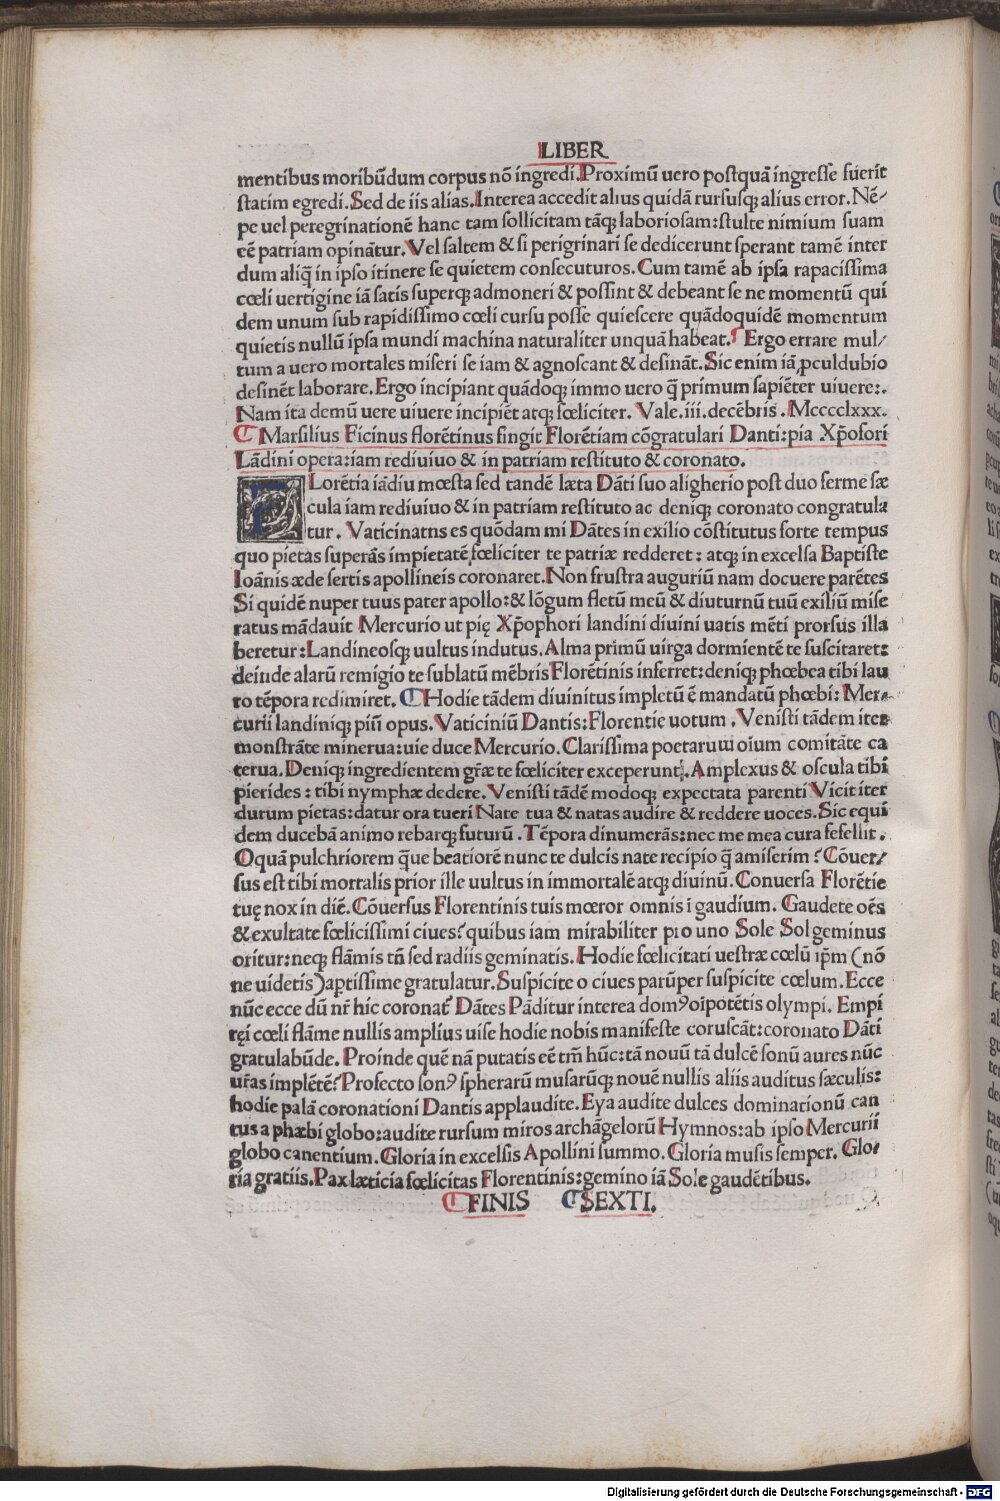 LIBER
mentibus moribūdum corpus nō ingredi. Proximū uero postquā ingresse fuerit
statim egredi. Sed de iis alias. Interea accedit alius quidā rursusq; alius error. Nē⸗
pe uel peregrinationē hanc tam sollicitam tāq; laboriosam: stulte nimium suam
eē patriam opinātur. Vel saltem & si perigrinari se dedicerunt sperant tamē inter
dum aliq̄ in ipso itinere se quietem consecuturos. Cum tamē ab ipsa rapacissima
cœli uertigine iā satis superq; admoneri & possint & debeant se ne momentū qui
dem unum sub rapidissimo cœli cursu posse quiescere quādoquidē momentum
quietis nullū ipsa mundi machina naturaliter unquā habeat. Ergo errare mul⸗
tum a uero mortales miseri se iam & agnoscant & desināt. Sic enim iā ꝓculdubio
desinēt laborare. Ergo incipiant quādoq; immo uero q̄ primum sapiēter uiuere:.
Nam ita demū uere uiuere incipiēt atq; fœliciter. Vale. iii. decēbris. Mcccclxxx.
Marsilius Ficinus florētinus fingit Florētiam cōgratulari Danti: pia Xp̄ofori
Lādini opera: iam rediuiuo & in patriam restituto & coronato.
FLorētia iādiu mœsta sed tandē læta Dāti suo aligherio post duo ferme sæ
cula iam rediuiuo & in patriam restituto ac deniq; coronato congratula
tur. Vaticinatns es quōdam mi Dātes in exilio cōstitutus forte tempus
quo pietas superās impietatē fœliciter te patriæ redderet: atq; in excelsa Baptiste
Ioānis æde sertis apollineis coronaret. Non frustra auguriū nam docuere parētes
Si quidē nuper tuus pater apollo: & lōgum fletū meū & diuturnū tuū exiliū mise
ratus mādauit Mercurio ut pię Xp̄ophori landini diuini uatis mēti prorsus illa
beretur: Landineosq; uultus indutus. Alma primū uirga dormientē te suscitaret:
deinde alarū remigio te sublatū mēbris Florētinis inferret: deniq; phœbea tibi lau
ro tēpora redimiret. Hodie tādem diuinitus impletū ē mandatū phœbi: Mer⸗
curii landiniq; piū opus. Vaticiniū Dantis: Florentie uotum. Venisti tādem iter
monstrāte minerua: uie duce Mercurio. Clarissima poetarum oium comitāte ca
terua. Deniq; ingredientem gr̄æ te fœliciter exceperunt. Amplexus & oscula tibi
pierides: tibi nymphæ dedere. Venisti tādē modoq; expectata parenti Vicit iter
durum pietas: datur ora tueri Nate tua & natas audire & reddere uoces. Sic equi
dem ducebā animo rebarq; futurū. Tēpora dinumerās: nec me mea cura fefellit.
Oquā pulchriorem q̄ue beatiorē nunc te dulcis nate recipio q̄ amiserim? Cōuer⸗
sus est tibi mortalis prior ille uultus in immortalē atq; diuinū. Conuersa Florētie
tuę nox in diē. Cōuersus Florentinis tuis mœror omnis ī gaudium. Gaudete oēs
& exultate fœlicissimi ciues? quibus iam mirabiliter pro uno Sole Sol geminus
oritur: neq; flāmis tn̄ sed radiis geminatis. Hodie fœlicitati uestræ cœlū ip̄m (nō
ne uidetis) aptissime gratulatur. Suspicite o ciues parūper suspicite cœlum. Ecce
nūc ecce dū nr̄ hic coronat Dātes Pāditur interea domꝰ oīpotētis olympi. Empi
ręi cœli flāme nullis amplius uise hodie nobis manifeste coruscāt: coronato Dāti
gratulabūde. Proinde quē nā putatis eē tm̄ hūc: tā nouū tā dulcē sonū aures nūc
ur̄as implētē? Profecto sonꝰ spherarū musarūq; nouē nullis aliis auditus sæculis:
hodie palā coronationi Dantis applaudite. Eya audite dulces dominationū can
tus a phæbi globo: audite rursum miros archāgelorū Hymnos: ab ipso Mercurii
globo canentium. Gloria in excelsis Apollini summo. Gloria musis semper. Glo⸗
ria gratiis. Pax læticia fœlicitas Florentinis: gemino iā Sole gaudētibus.
FINIS SEXTI.
Digitalisierung gefördert durch die Deutsche Forschungsgemeinschaft - DFG